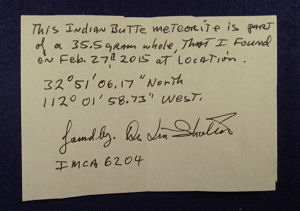 This Indian Butte meteorite is part
of a 35.5 gram whole, that I found
on Feb. 27th 2015 at location.
32° 51' 06.17" North
112° 01' 58.73" West.
found by.
IMCA 6204